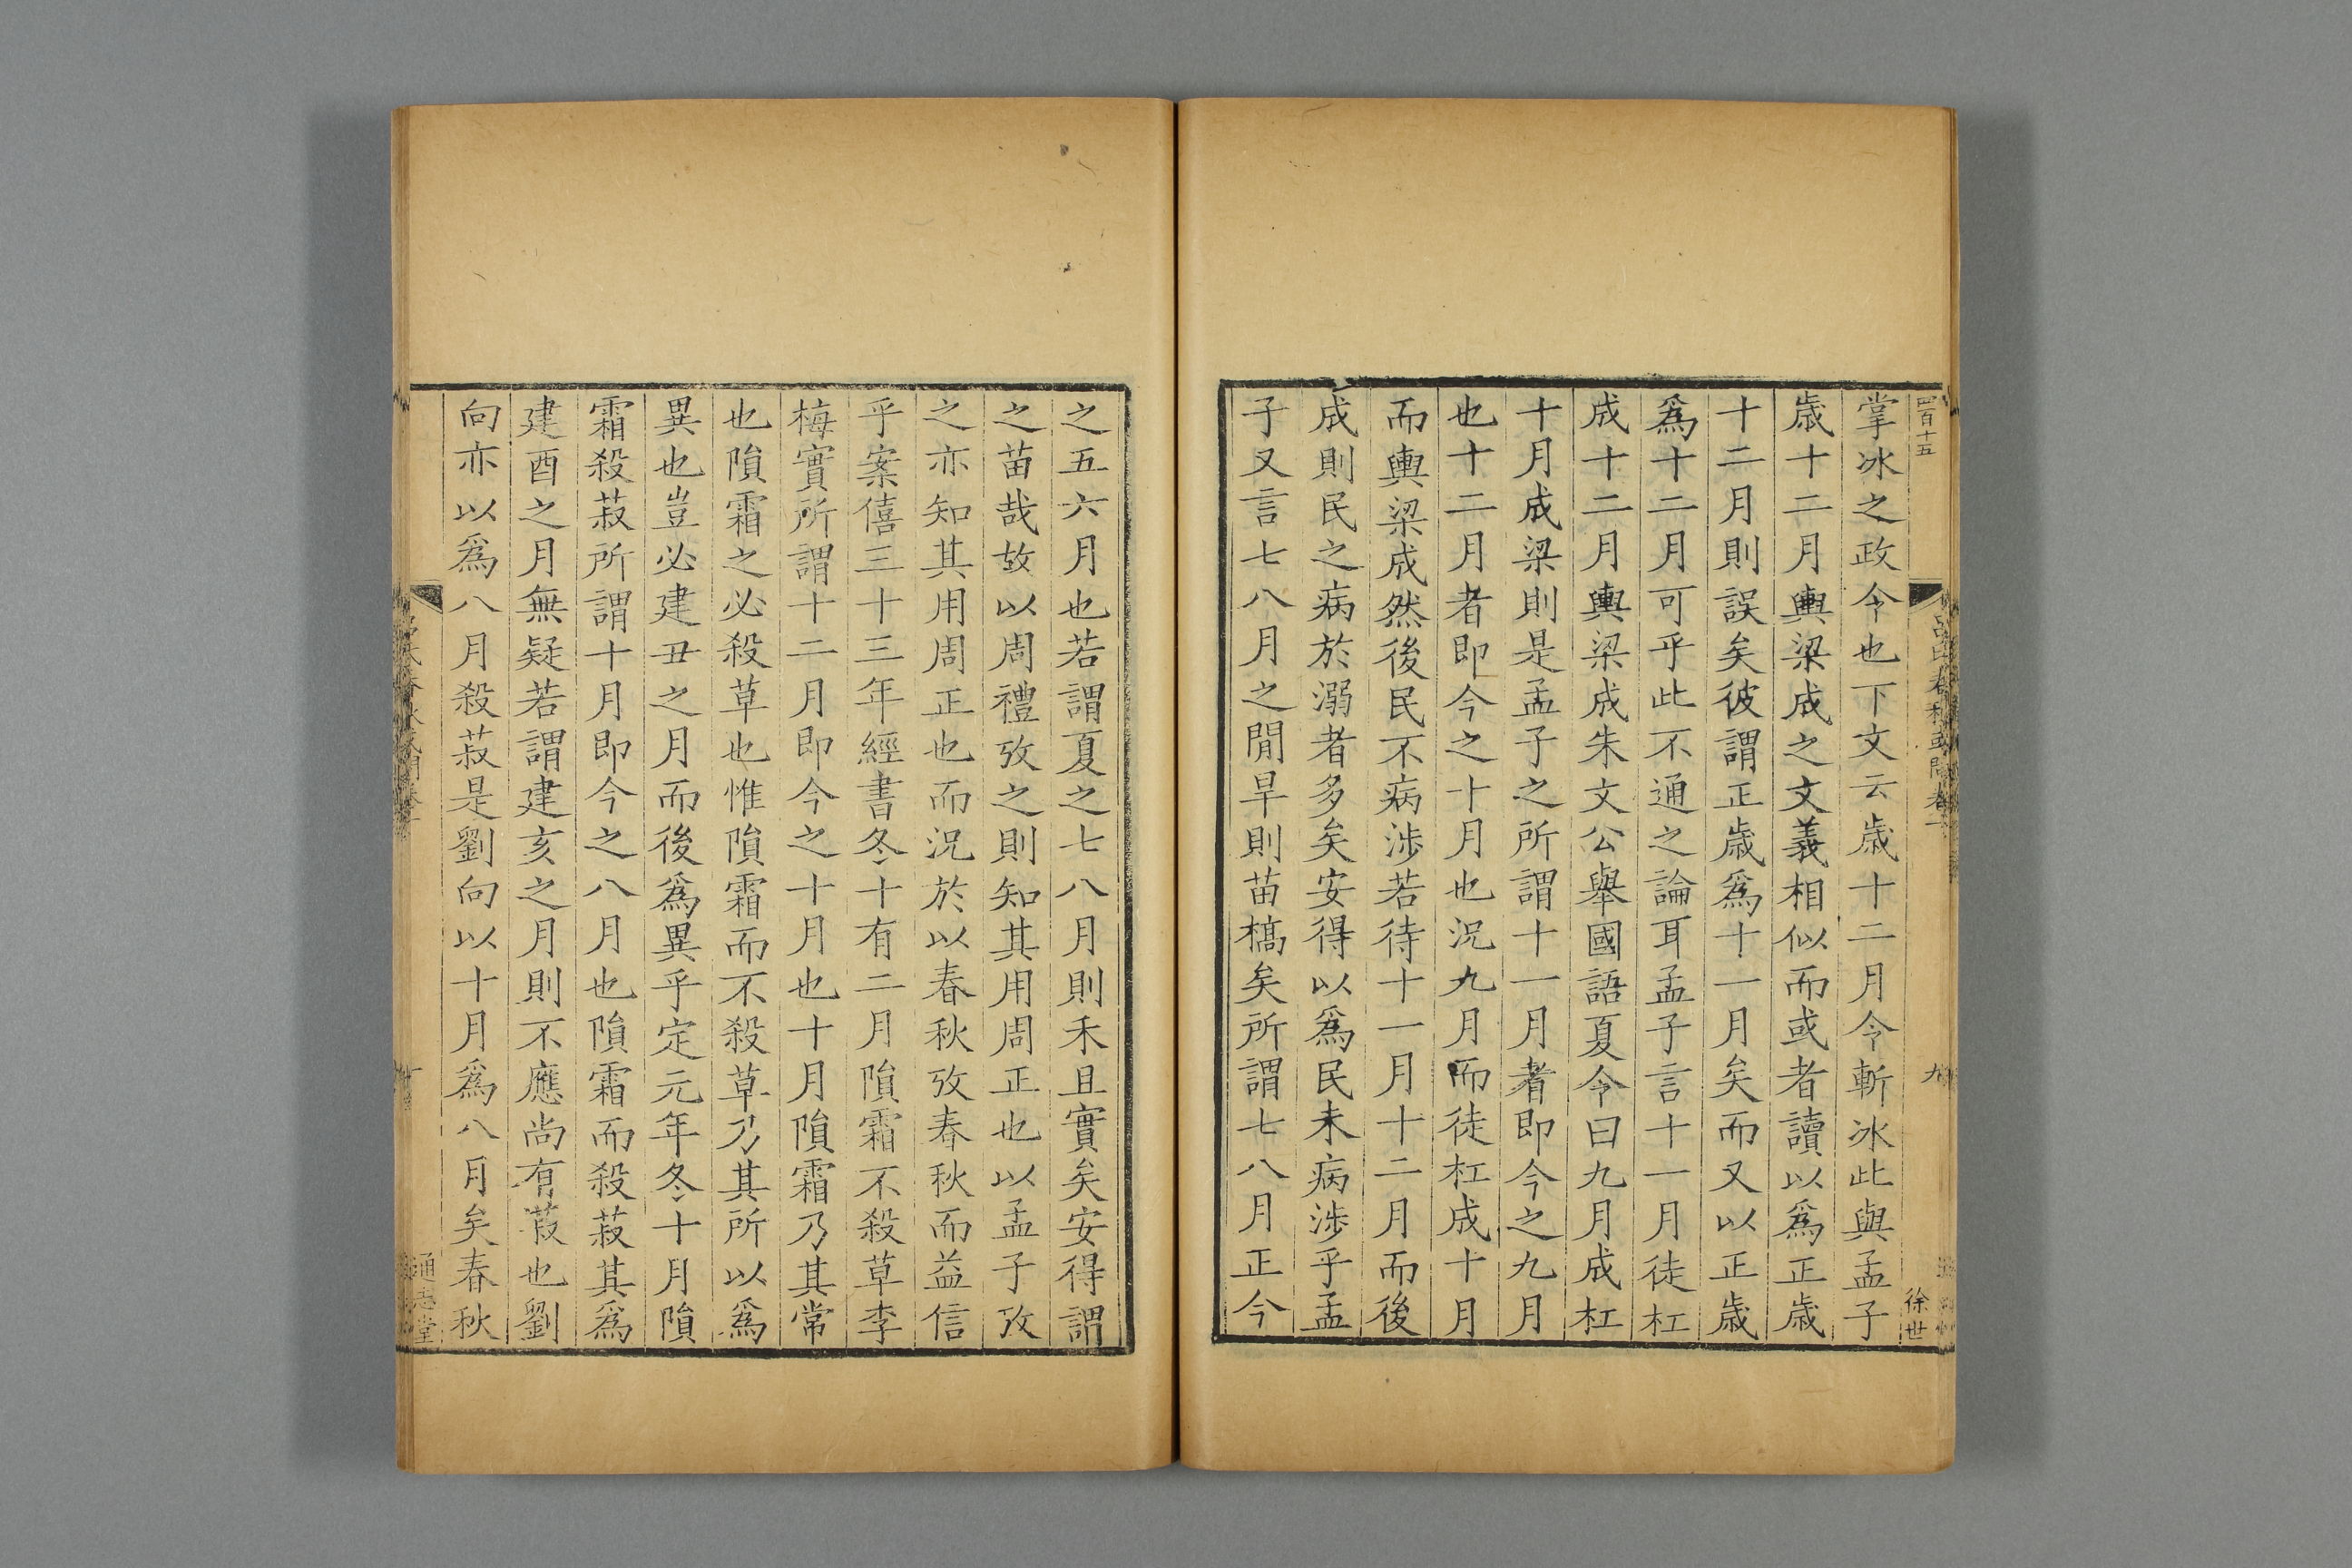 四百十五
九
徐世
掌冰之政令也下文云歲十二月令斬冰此與孟子
歲十二月輿梁成之文義相似而或者讀以爲正歲
十二月則誤矣彼謂正歲爲十一月矣而又以正歲
爲十二月可乎此不通之論耳孟子言十一月徒杠
成十二月輿梁成朱文公舉國語夏令曰九月成杠
十月成梁則是孟子之所謂十一月者即今之九月
也十二月者即今之十月也況九月而徒杠成十月
而輿梁成然後民不病涉若待十一月十二月而後
成則民之病於溺者多矣安得以爲民未病涉乎孟
子又言七八月之閒旱則苗槁矣所謂七八月正今
之五六月也若謂夏之七八月則禾且實矣安得謂
之苗哉故以周禮攷之則知其用周正也以孟子攷
之亦知其用周正也而況於以春秋攷春秋而益信
乎案僖三十三年經書冬十有二月隕霜不殺草李
梅實所謂十二月即今之十月也十月隕霜乃其常
也隕霜之必殺草也惟隕霜而不殺草乃其所以爲
異也豈必建丑之月而後爲異乎定元年冬十月隕
霜殺菽所謂十月即今之八月也隕霜而殺菽其爲
建酉之月無疑若謂建亥之月則不應尚有菽也劉
向亦以爲八月殺菽是劉向以十月爲八月矣春秋
通志堂